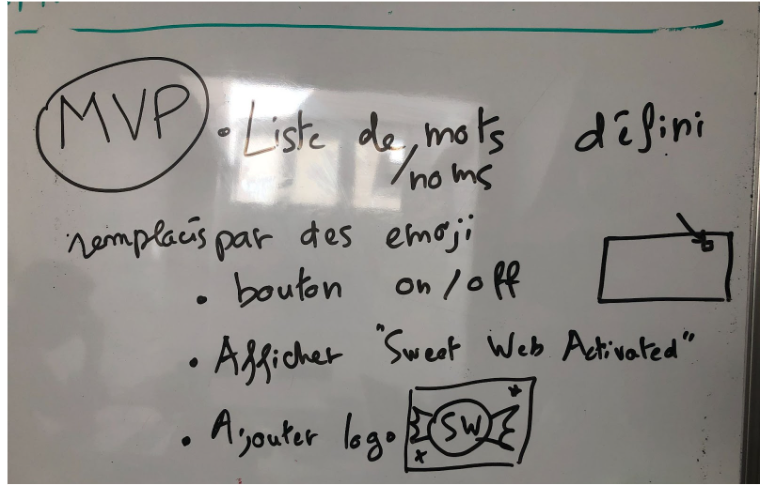 MVP
• Liste de mots défini
/noms
remplacés par des emoji
• bouton on/off
• Afficher "Sweet Web Activated"
• Ajouter logo SW